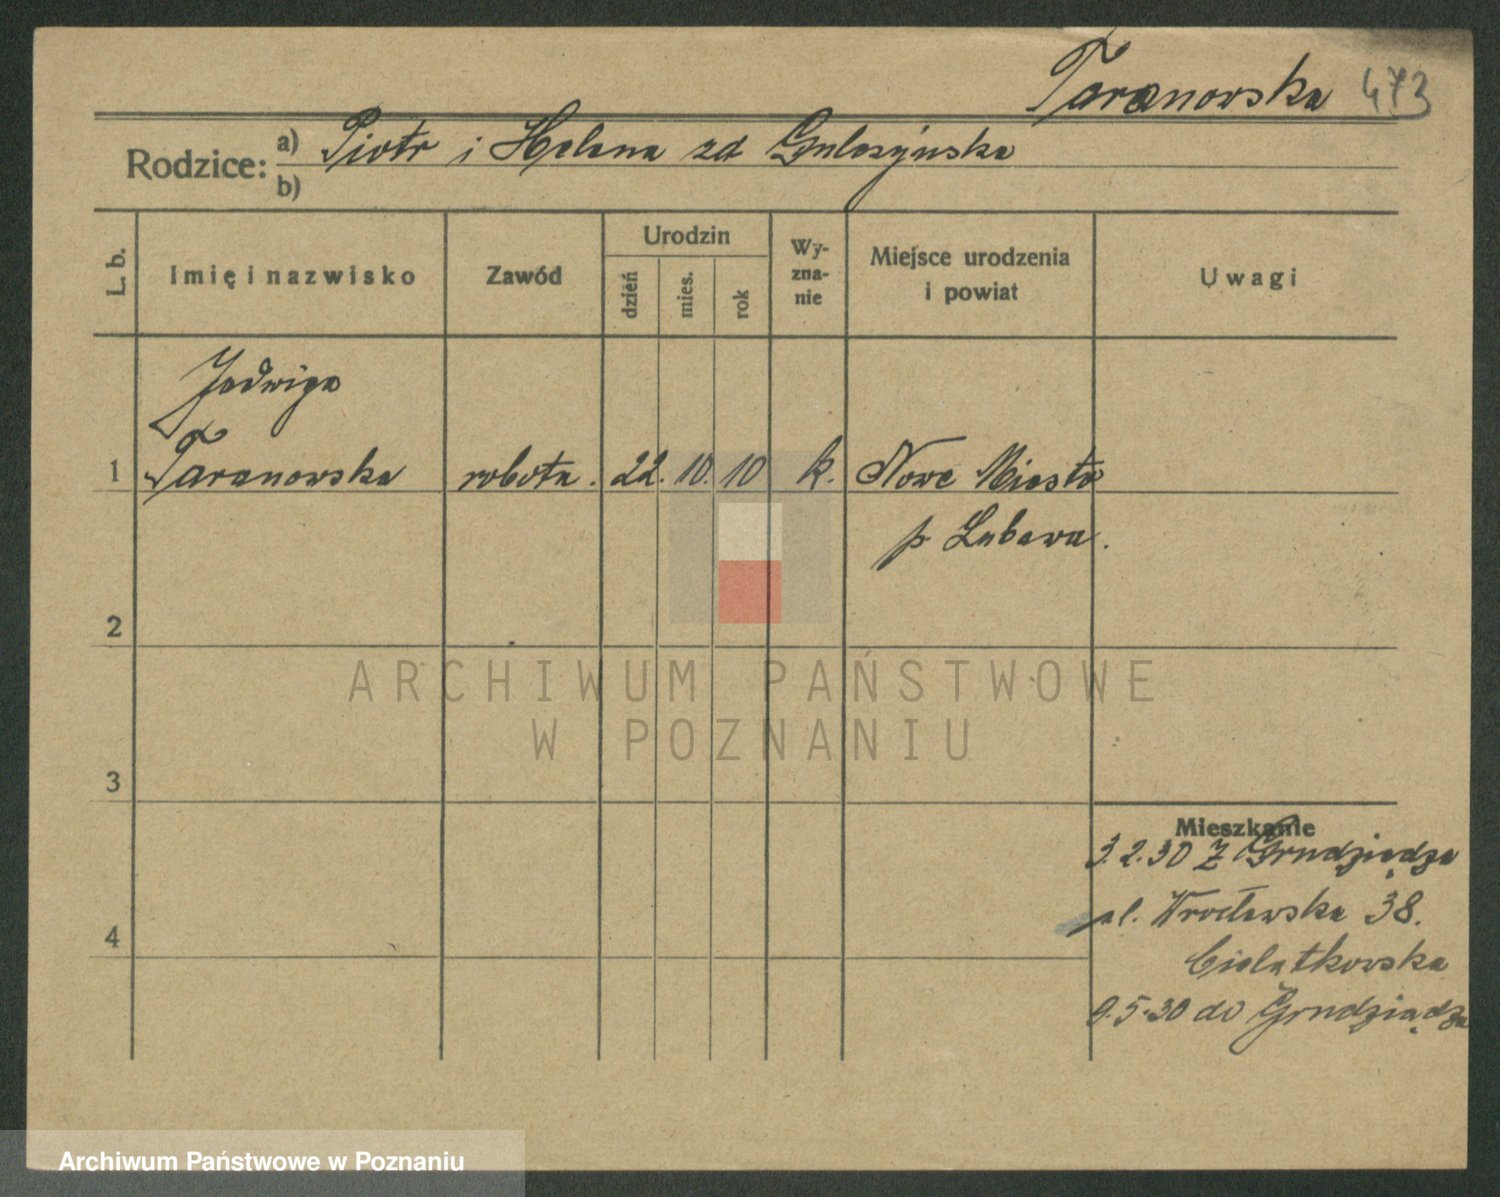 Taranowska 473
Rodzice: a) Piotr i Helena zd
b)
L. b.
Imię i nazwisko
Zawód
Urodzin
dzień
mies.
rok
Wy-
zna-
nie
Miejsce urodzenia
i powiat
Uwagi
Jadwiga
1 Taranowska robotn. 22. 10. 10 k. Nowe Miasto
p Lubawa.
2
3
4
Mieszkanie
3.2.30 z Grudziądza
ul. Wrocławska 38.
9.5.30 do Grudziądza
ARCHIWUM PAŃSTWOWE
W POZNANIU
Archiwum Państwowe w Poznaniu